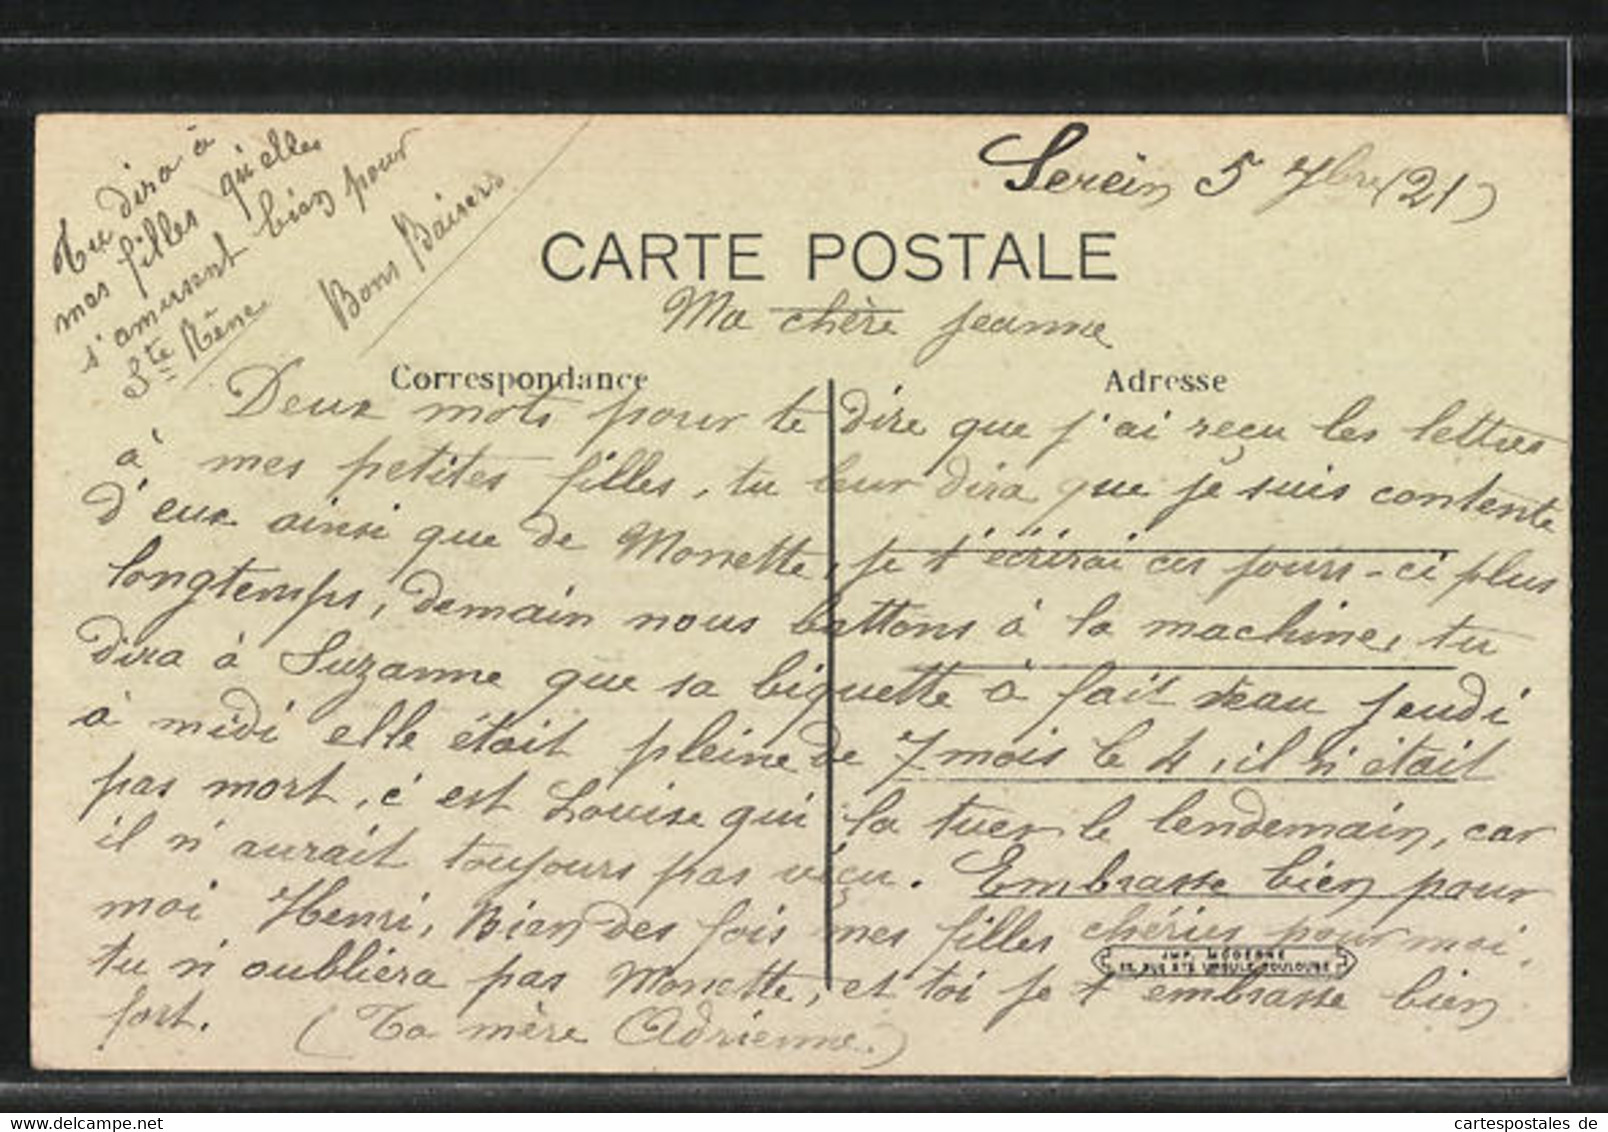 Tu dira à
mes filles qu'elles
s'amusent bien pour
Ste Rêne
Bons Baisers
Serein 5 7bre (21)
CARTE POSTALE
Ma chère Jeanne
Correspondance
Adresse
Deux mots pour te dire que j'ai reçu les lettres
à mes petites filles, tu leur dira que je suis contente
d'eux ainsi que de Monette, je t'écrirai ces jours-ci plus
longtemps, demain nous battons à la machine, tu
dira à Suzanne que sa biquette à fait veau jeudi
à midi elle était pleine de 7 mois le 4, il n'était
pas mort, c'est Louise qui la tuer le lendemain, car
il n'aurait toujours pas viçu. Embrasse bien pour
moi Henri, Bien des fois mes filles chéries pour moi.
tu n'oubliera pas Monette, et toi je t'embrasse bien
fort. (Ta mère Adrienne.)
IMP. MODERNE
RUE STE URSULE TOULOUSE
cartespostales de